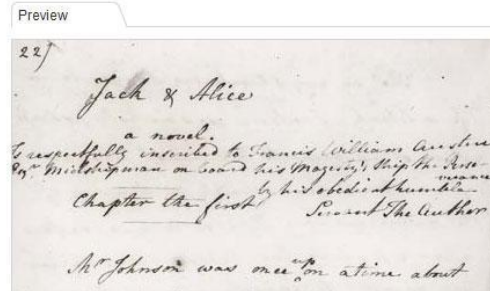 Preview
22)
Jack & Alice
a novel.
Is respectfully inscribed to Francis William Austen
Esqr. Midshipman on board his Majesty's Ship the Perse-
verance
by his obedient humble
Chapter the first Servant The Author
Mr Johnson was once up on a time about